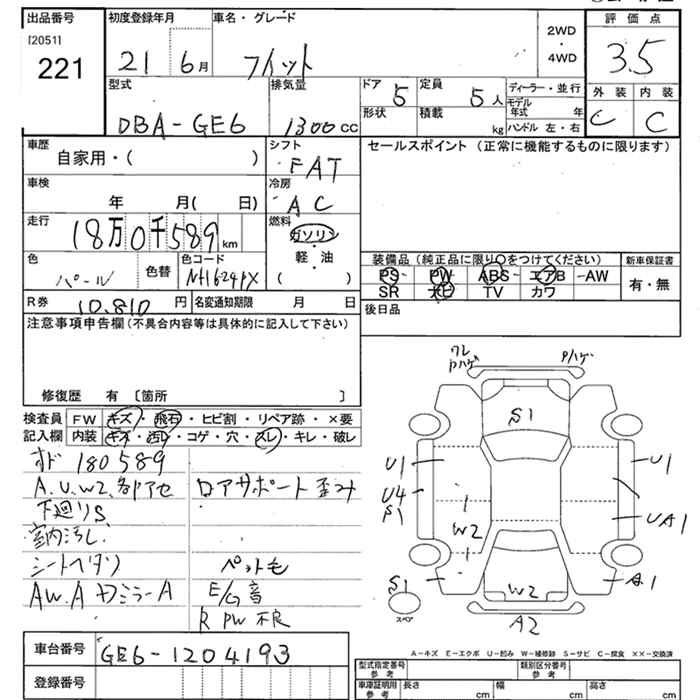 出品番号
[2051]
221
初度登録年月
21 6月
車名・グレード
フィット
2WD
・
4WD
評価点
3.5
型式
DBA-GE6
排気量
1300cc
ドア
5
定員
5人
形状
積載
kg
ディーラー・並行
モデル
年式 年
ハンドル 左・右
外装 内装
C C
車歴
自家用・( )
シフト
FAT
車検
年 月( 日)
冷房
AC
走行
18万0千589km
燃料
ガソリン
軽・油
( )
色
パール
色替
色コード
NH624PX
R券
10.810円
名変通知期限 月 日
セールスポイント (正常に機能するものに限ります)
装備品 (純正品に限り○をつけてください)
PS PW ABS エアB AW
SR ナビ TV カワ
新車保証書
有・無
後日品
注意事項申告欄 (不具合内容等は具体的に記入して下さい)
修復歴 有 〔箇所 〕
検査員
記入欄
FW キズ・飛石・ヒビ割・リペア跡・×要
内装 キズ・汚レ・コゲ・穴・スレ・キレ・破レ
メド 180589
A.U.W2.各部アセ
下廻りS
室内汚し
シートヘタリ
AW.A ドミラーA
ロアサポート歪み
ペット毛
E/G音
R PW 不良
ワレ
Pハゲ
Pハゲ
S1
U1
U4
S1
W2
U1
UA1
A1
S1
スペア
W2
A2
A-キズ E-エクボ U-凹み W-補修跡 S-サビ C-腐食 ××-交換済
車台番号
GE6-1204193
登録番号
型式指定番号
参考
類別区分番号
参考
車庫証明用
参考
長さ cm
幅 cm
高さ cm